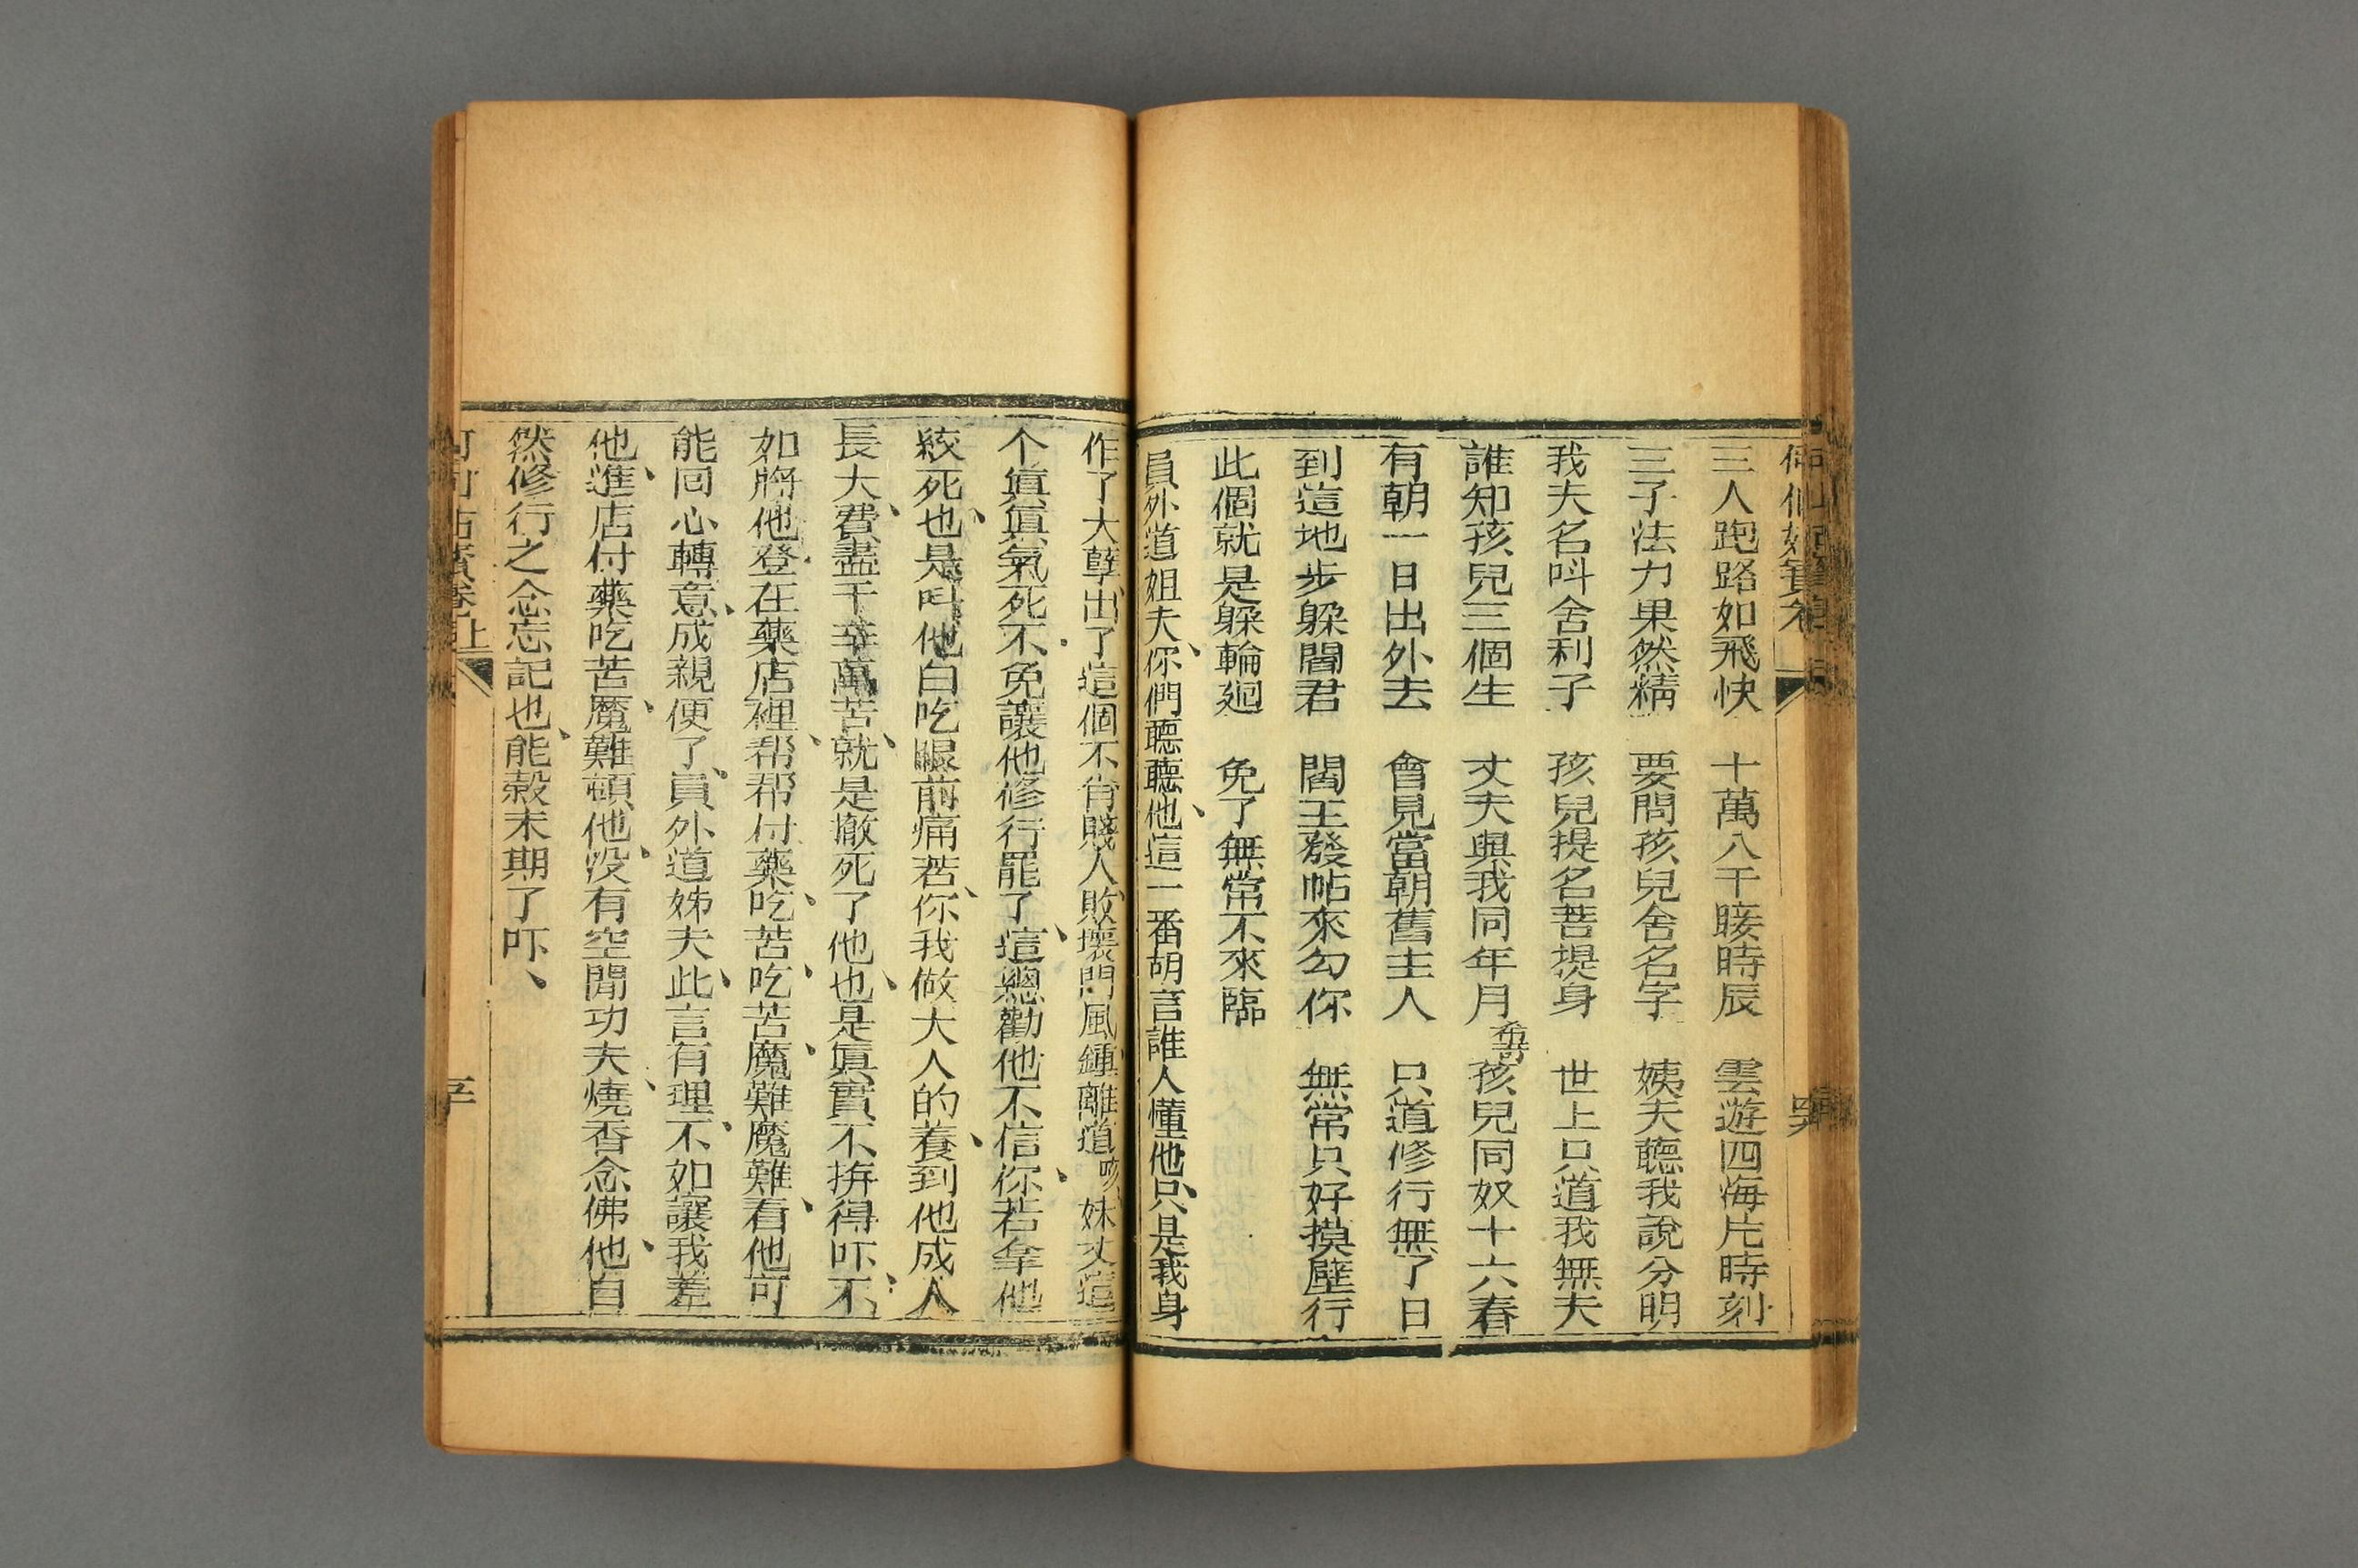 何仙姑寶卷
三人跑路如飛快 十萬八千睫時辰 雲遊四海片時刻
三子法力果然精 要問孩兒舍名字 姨夫聽我說分明
我夫名呌舍利子 孩兒提名菩提身 世上只道我無夫
誰知孩兒三個生 丈夫與我同年月 孩兒同奴十六春
有朝一日出外去 會見當朝舊主人 只道修行無了日
到這地步躱閻君 閻王發帖來勾你 無常只好摸壁行
此個就是躱輪廻 免了無常不來臨
員外道姐夫、你們聽聽、他這一番胡言誰人懂他、只是我身
作了大孽、出了這個不肖賤人、敗壞門風、鍾離道咳、妹丈這
个真真氣死、不免讓他修行罷了、這總勸他不信、你若拿他
絞死、也是呌他白吃眼前痛苦、你我做大人的、養到他成人
長大、費盡千辛萬苦、就是撤死了他、也是眞實不拚得吓、不
如將他登在藥店裡、帮帮付藥、吃苦吃、苦魔難魔難、看他可
能回心轉意、成親便了、員外道姊夫、此言有理、不如讓我差
他、進店付藥吃苦魔、難頓他、没有空閒功夫、燒香念佛、他自
然修行之念忘記也、能彀未期了吓、